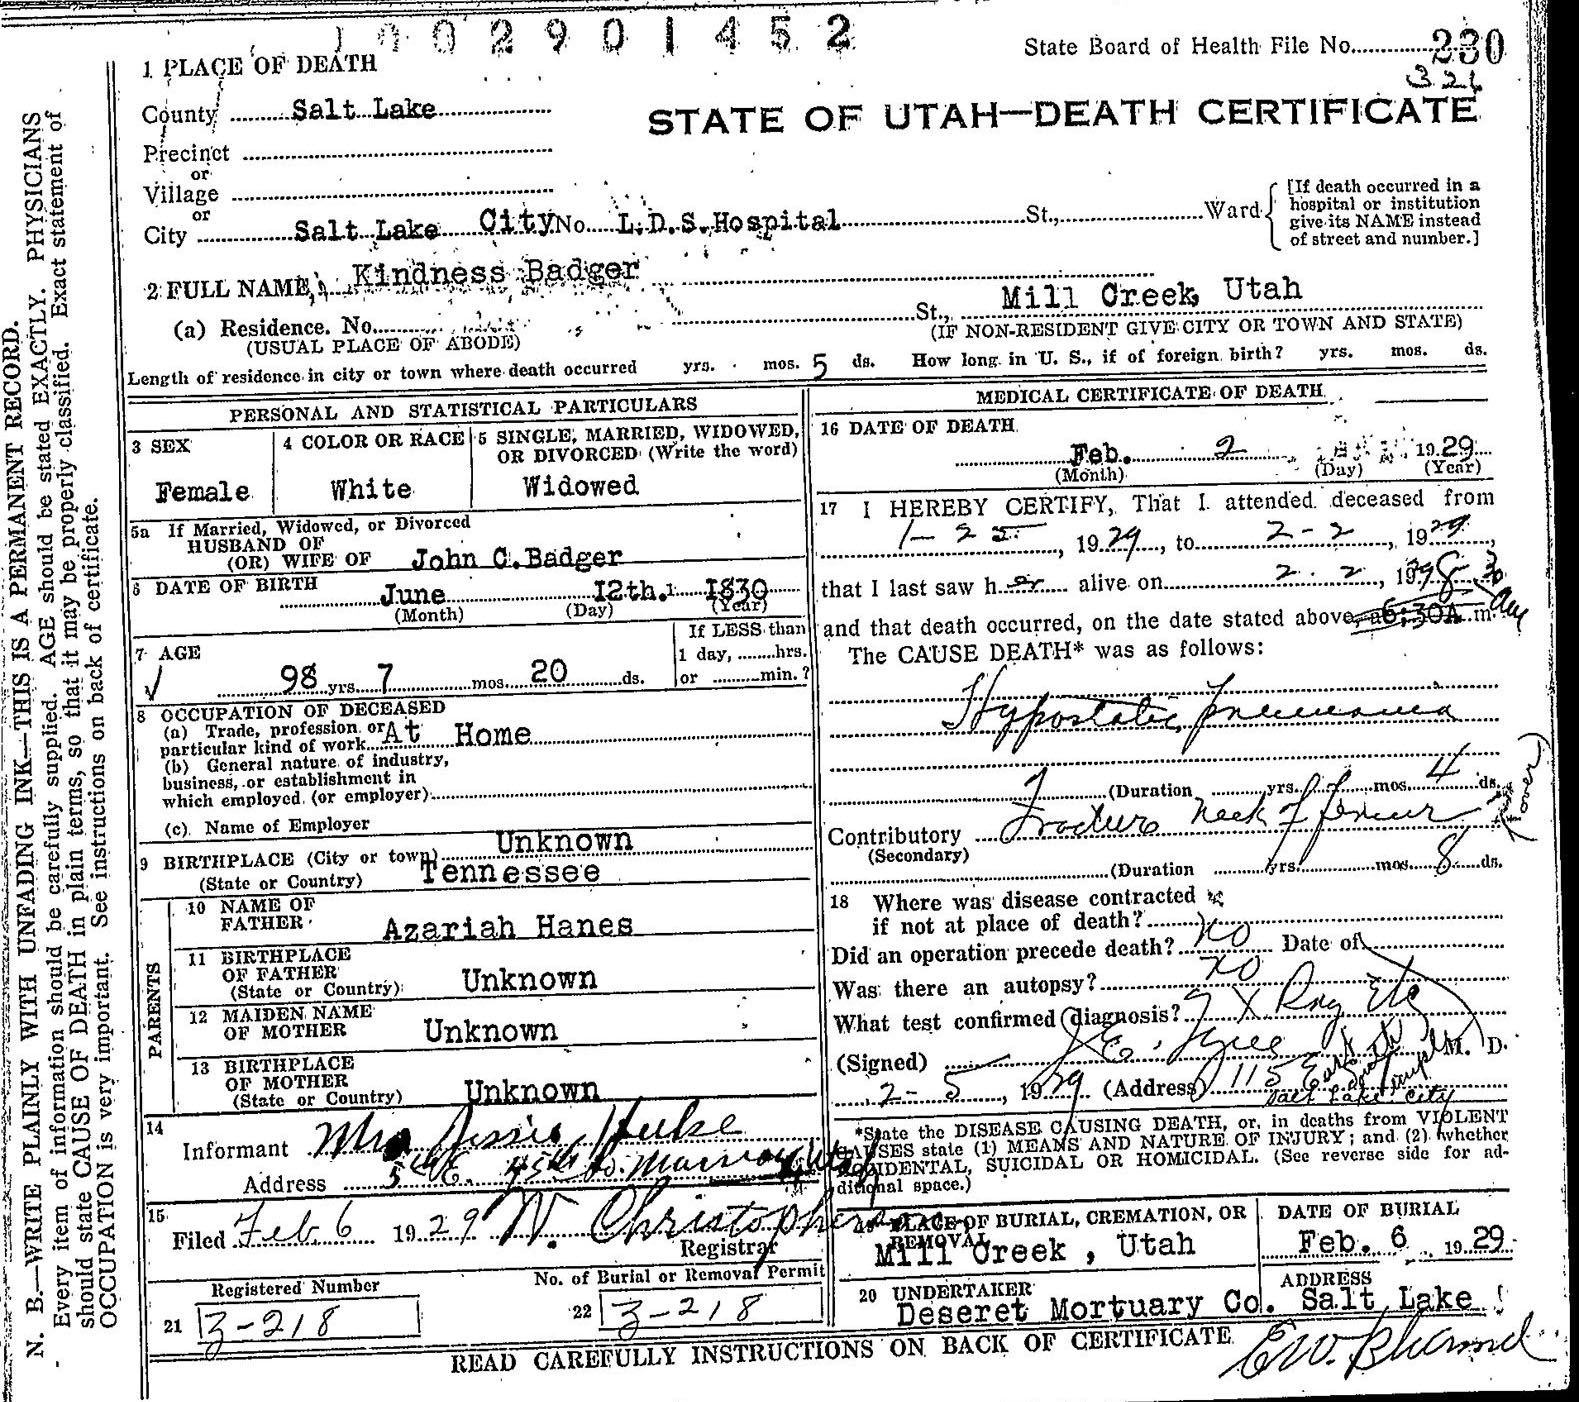 1002901452
State Board of Health File No. 230
326
1 PLACE OF DEATH
County Salt Lake
STATE OF UTAH—DEATH CERTIFICATE
Precinct
or
Village
or
City Salt Lake City No. L.D.S. Hospital St., Ward
[If death occurred in a
hospital or institution
give its NAME instead
of street and number.]
2 FULL NAME, Kindness Badger
(a) Residence. No. St., Mill Creek, Utah
(USUAL PLACE OF ABODE) (IF NON-RESIDENT GIVE CITY OR TOWN AND STATE)
Length of residence in city or town where death occurred yrs. mos. 5 ds. How long in U. S., if of foreign birth? yrs. mos. ds.
PERSONAL AND STATISTICAL PARTICULARS
3 SEX
Female
4 COLOR OR RACE
White
5 SINGLE, MARRIED, WIDOWED,
OR DIVORCED (Write the word)
Widowed
5a If Married, Widowed, or Divorced
HUSBAND OF
(OR) WIFE OF John C. Badger
6 DATE OF BIRTH
June 12th. 1830
(Month) (Day) (Year)
7 AGE
98 yrs. 7 mos. 20 ds.
If LESS than
1 day, hrs.
or min.?
8 OCCUPATION OF DECEASED
(a) Trade, profession or
particular kind of work At Home
(b) General nature of industry,
business, or establishment in
which employed (or employer)
(c) Name of Employer
9 BIRTHPLACE (City or town) Unknown
(State or Country) Tennessee
PARENTS
10 NAME OF
FATHER Azariah Hanes
11 BIRTHPLACE
OF FATHER
(State or Country) Unknown
12 MAIDEN NAME
OF MOTHER Unknown
13 BIRTHPLACE
OF MOTHER
(State or Country) Unknown
14
Informant Mrs Jessie Hulse
Address 5th E. 45th So. Murray Utah
15
Filed Feb 6 1929
Registrar
Registered Number
21 3-218
No. of Burial or Removal Permit
22 3-218
MEDICAL CERTIFICATE OF DEATH
16 DATE OF DEATH
Feb. 2 1929
(Month) (Day) (Year)
17 I HEREBY CERTIFY, That I attended deceased from
1-25, 1929, to 2-2, 1929,
that I last saw her alive on 2-2, 19
and that death occurred, on the date stated above, at 6:30A m.
The CAUSE DEATH* was as follows:
Hypostatic pneumonia
(Duration yrs. mos. 4 ds.
Contributory Fracture neck of femur (over)
(Secondary)
(Duration yrs. mos. 8 ds.
18 Where was disease contracted
if not at place of death?
Did an operation precede death? No Date of
Was there an autopsy? No
What test confirmed diagnosis? X Ray Etc
(Signed) J. E. Tyree M. D.
2-5, 1929 (Address) 115 East South Temple
Salt Lake City
*State the DISEASE CAUSING DEATH, or, in deaths from VIOLENT
CAUSES state (1) MEANS AND NATURE OF INJURY; and (2) whether
ACCIDENTAL, SUICIDAL OR HOMICIDAL. (See reverse side for ad-
ditional space.)
19 PLACE OF BURIAL, CREMATION, OR
REMOVAL
Mill Creek, Utah
DATE OF BURIAL
Feb. 6 1929
20 UNDERTAKER
Deseret Mortuary Co.
ADDRESS
Salt Lake
READ CAREFULLY INSTRUCTIONS ON BACK OF CERTIFICATE
N. B.—WRITE PLAINLY WITH UNFADING INK—THIS IS A PERMANENT RECORD.
Every item of information should be carefully supplied. AGE should be stated EXACTLY. PHYSICIANS
should state CAUSE OF DEATH in plain terms, so that it may be properly classified. Exact statement of
OCCUPATION is very important. See instructions on back of certificate.